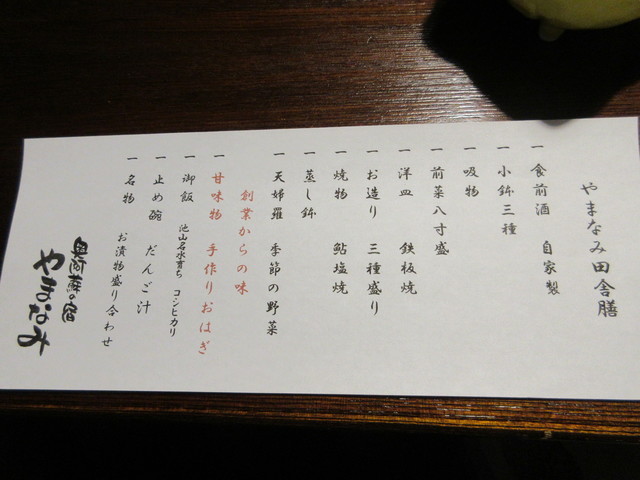 やまなみ田舎膳
一 食前酒 自家製
一 小鉢三種
一 吸物
一 前菜八寸盛
一 洋皿 鉄板焼
一 お造り 三種盛り
一 焼物 鮎塩焼
一 蒸し鉢
一 天婦羅 季節の野菜
創業からの味
一 甘味物 手作りおはぎ
一 御飯 池山名水育ち コシヒカリ
一 止め碗 だんご汁
一 名物 お漬物盛り合わせ
奥阿蘇の宿
やまなみ